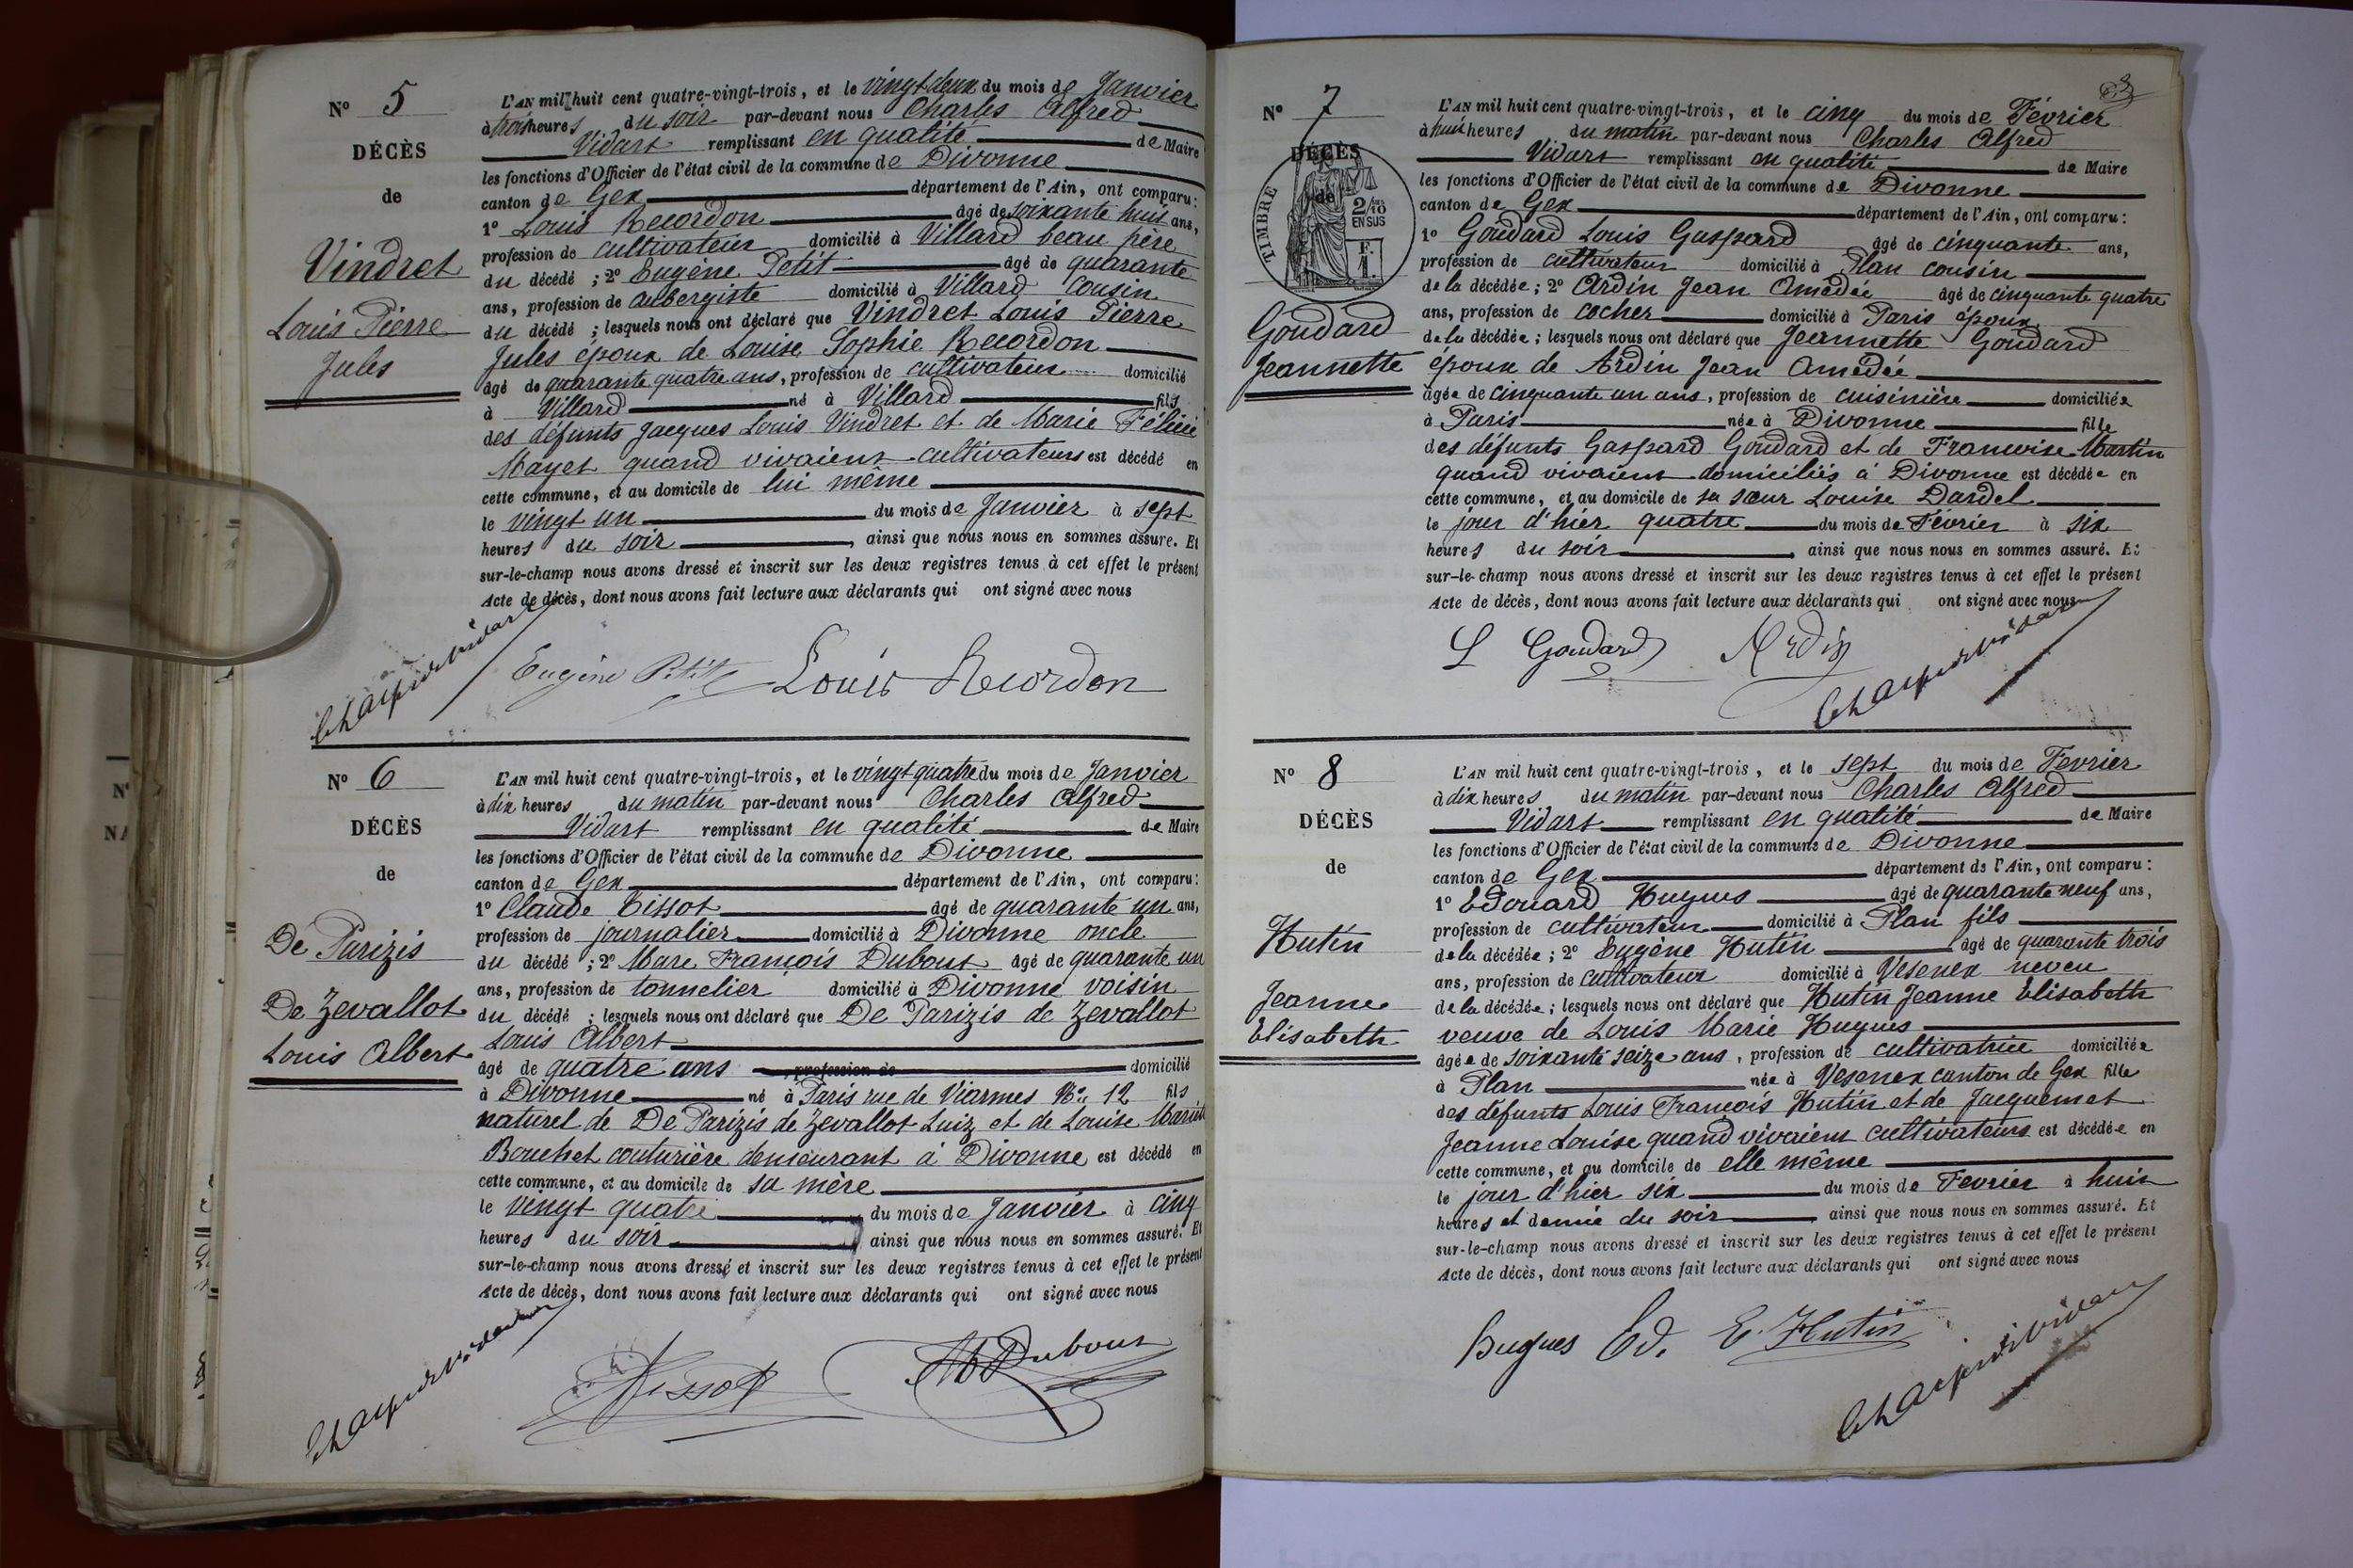 N° 5
DÉCÈS
de
Vindret
Louis Pierre
Jules
L'AN mil huit cent quatre-vingt-trois, et le vingt deux du mois de Janvier
à trois heures du soir par-devant nous Charles Alfred
Vidart remplissant en qualité de Maire
les fonctions d'Officier de l'état civil de la commune de Divonne
canton de Gex département de l'Ain, ont comparu:
1° Louis Recordon âgé de soixante huit ans,
profession de cultivateur domicilié à Villard beau père
du décédé ; 2° Eugène Petit âgé de quarante
ans, profession de aubergiste domicilié à Villard cousin
du décédé ; lesquels nous ont déclaré que Vindret Louis Pierre
Jules époux de Louise Sophie Recordon
âgé de quarante quatre ans, profession de cultivateur domicilié
à Villard né à Villard fils
des défunts Jacques Louis Vindret et de Marie Félicie
Mayet quand vivaient cultivateurs est décédé en
cette commune, et au domicile de lui même
le vingt un du mois de Janvier à sept
heures du soir, ainsi que nous nous en sommes assuré. Et
sur-le-champ nous avons dressé et inscrit sur les deux registres tenus à cet effet le présent
Acte de décès, dont nous avons fait lecture aux déclarants qui ont signé avec nous
Eugène Petit Louis Recordon
N° 6
DÉCÈS
de
De Parizis
De Zevallot
Louis Albert
L'AN mil huit cent quatre-vingt-trois, et le vingt quatre du mois de Janvier
à dix heures du matin par-devant nous Charles Alfred
Vidart remplissant en qualité de Maire
les fonctions d'Officier de l'état civil de la commune de Divonne
canton de Gex département de l'Ain, ont comparu:
1° Claude Tissot âgé de quarante un ans,
profession de journalier domicilié à Divonne oncle
du décédé ; 2° Marc François Dubout âgé de quarante un
ans, profession de tonnelier domicilié à Divonne voisin
du décédé ; lesquels nous ont déclaré que De Parizis de Zevallot
Louis Albert
âgé de quatre ans, profession de domicilié
à Divonne né à Paris rue de Viarmes No 12 fils
naturel de De Parizis de Zevallot Luiz et de Louise
Bouchet couturière demeurant à Divonne est décédé en
cette commune, et au domicile de sa mère
le vingt quatre du mois de Janvier à cinq
heures du soir, ainsi que nous nous en sommes assuré. Et
sur-le-champ nous avons dressé et inscrit sur les deux registres tenus à cet effet le présent
Acte de décès, dont nous avons fait lecture aux déclarants qui ont signé avec nous
Tissot Dubout
N° 7
DÉCÈS
de
TIMBRE
2/10
EN SUS
F.
1.
Goudard
Jeannette
L'AN mil huit cent quatre-vingt-trois, et le cinq du mois de Février
à huit heures du matin par-devant nous Charles Alfred
Vidart remplissant en qualité de Maire
les fonctions d'Officier de l'état civil de la commune de Divonne
canton de Gex département de l'Ain, ont comparu:
1° Goudard Louis Gaspard âgé de cinquante ans,
profession de cultivateur domicilié à Plan cousin
de la décédée ; 2° Ardin Jean Amédée âgé de cinquante quatre
ans, profession de cocher domicilié à Paris époux
de la décédée ; lesquels nous ont déclaré que Jeannette Goudard
épouse de Ardin Jean Amédée
âgée de cinquante un ans, profession de cuisinière domiciliée
à Paris née à Divonne fille
des défunts Gaspard Goudard et de Francoise Martin
quand vivaient domiciliés à Divonne est décédée en
cette commune, et au domicile de sa sœur Louise Dardel
le jour d'hier quatre du mois de Février à six
heures du soir, ainsi que nous nous en sommes assuré. Et
sur-le-champ nous avons dressé et inscrit sur les deux registres tenus à cet effet le présent
Acte de décès, dont nous avons fait lecture aux déclarants qui ont signé avec nous
L Goudard Ardin
N° 8
DÉCÈS
de
Hutin
Jeanne
Elisabeth
L'AN mil huit cent quatre-vingt-trois, et le sept du mois de Fevrier
à dix heures du matin par-devant nous Charles Alfred
Vidart remplissant en qualité de Maire
les fonctions d'Officier de l'état civil de la commune de Divonne
canton de Gex département de l'Ain, ont comparu:
1° Edouard Hugues âgé de quarante neuf ans,
profession de cultivateur domicilié à Plan fils
de la décédée ; 2° Eugène Hutin âgé de quarante trois
ans, profession de cultivateur domicilié à Vesenex neveu
de la décédée ; lesquels nous ont déclaré que Hutin Jeanne Elisabeth
veuve de Louis Marie Hugues
âgée de soixante seize ans, profession de cultivatrice domiciliée
à Plan née à Vesenex canton de Gex fille
des défunts Louis François Hutin et de Jacquemet
Jeanne Louise quand vivaient cultivateurs est décédée en
cette commune, et au domicile de elle même
le jour d'hier six du mois de Fevrier à huit
heures et demie du soir, ainsi que nous nous en sommes assuré. Et
sur-le-champ nous avons dressé et inscrit sur les deux registres tenus à cet effet le présent
Acte de décès, dont nous avons fait lecture aux déclarants qui ont signé avec nous
Hugues Ed. E. Hutin